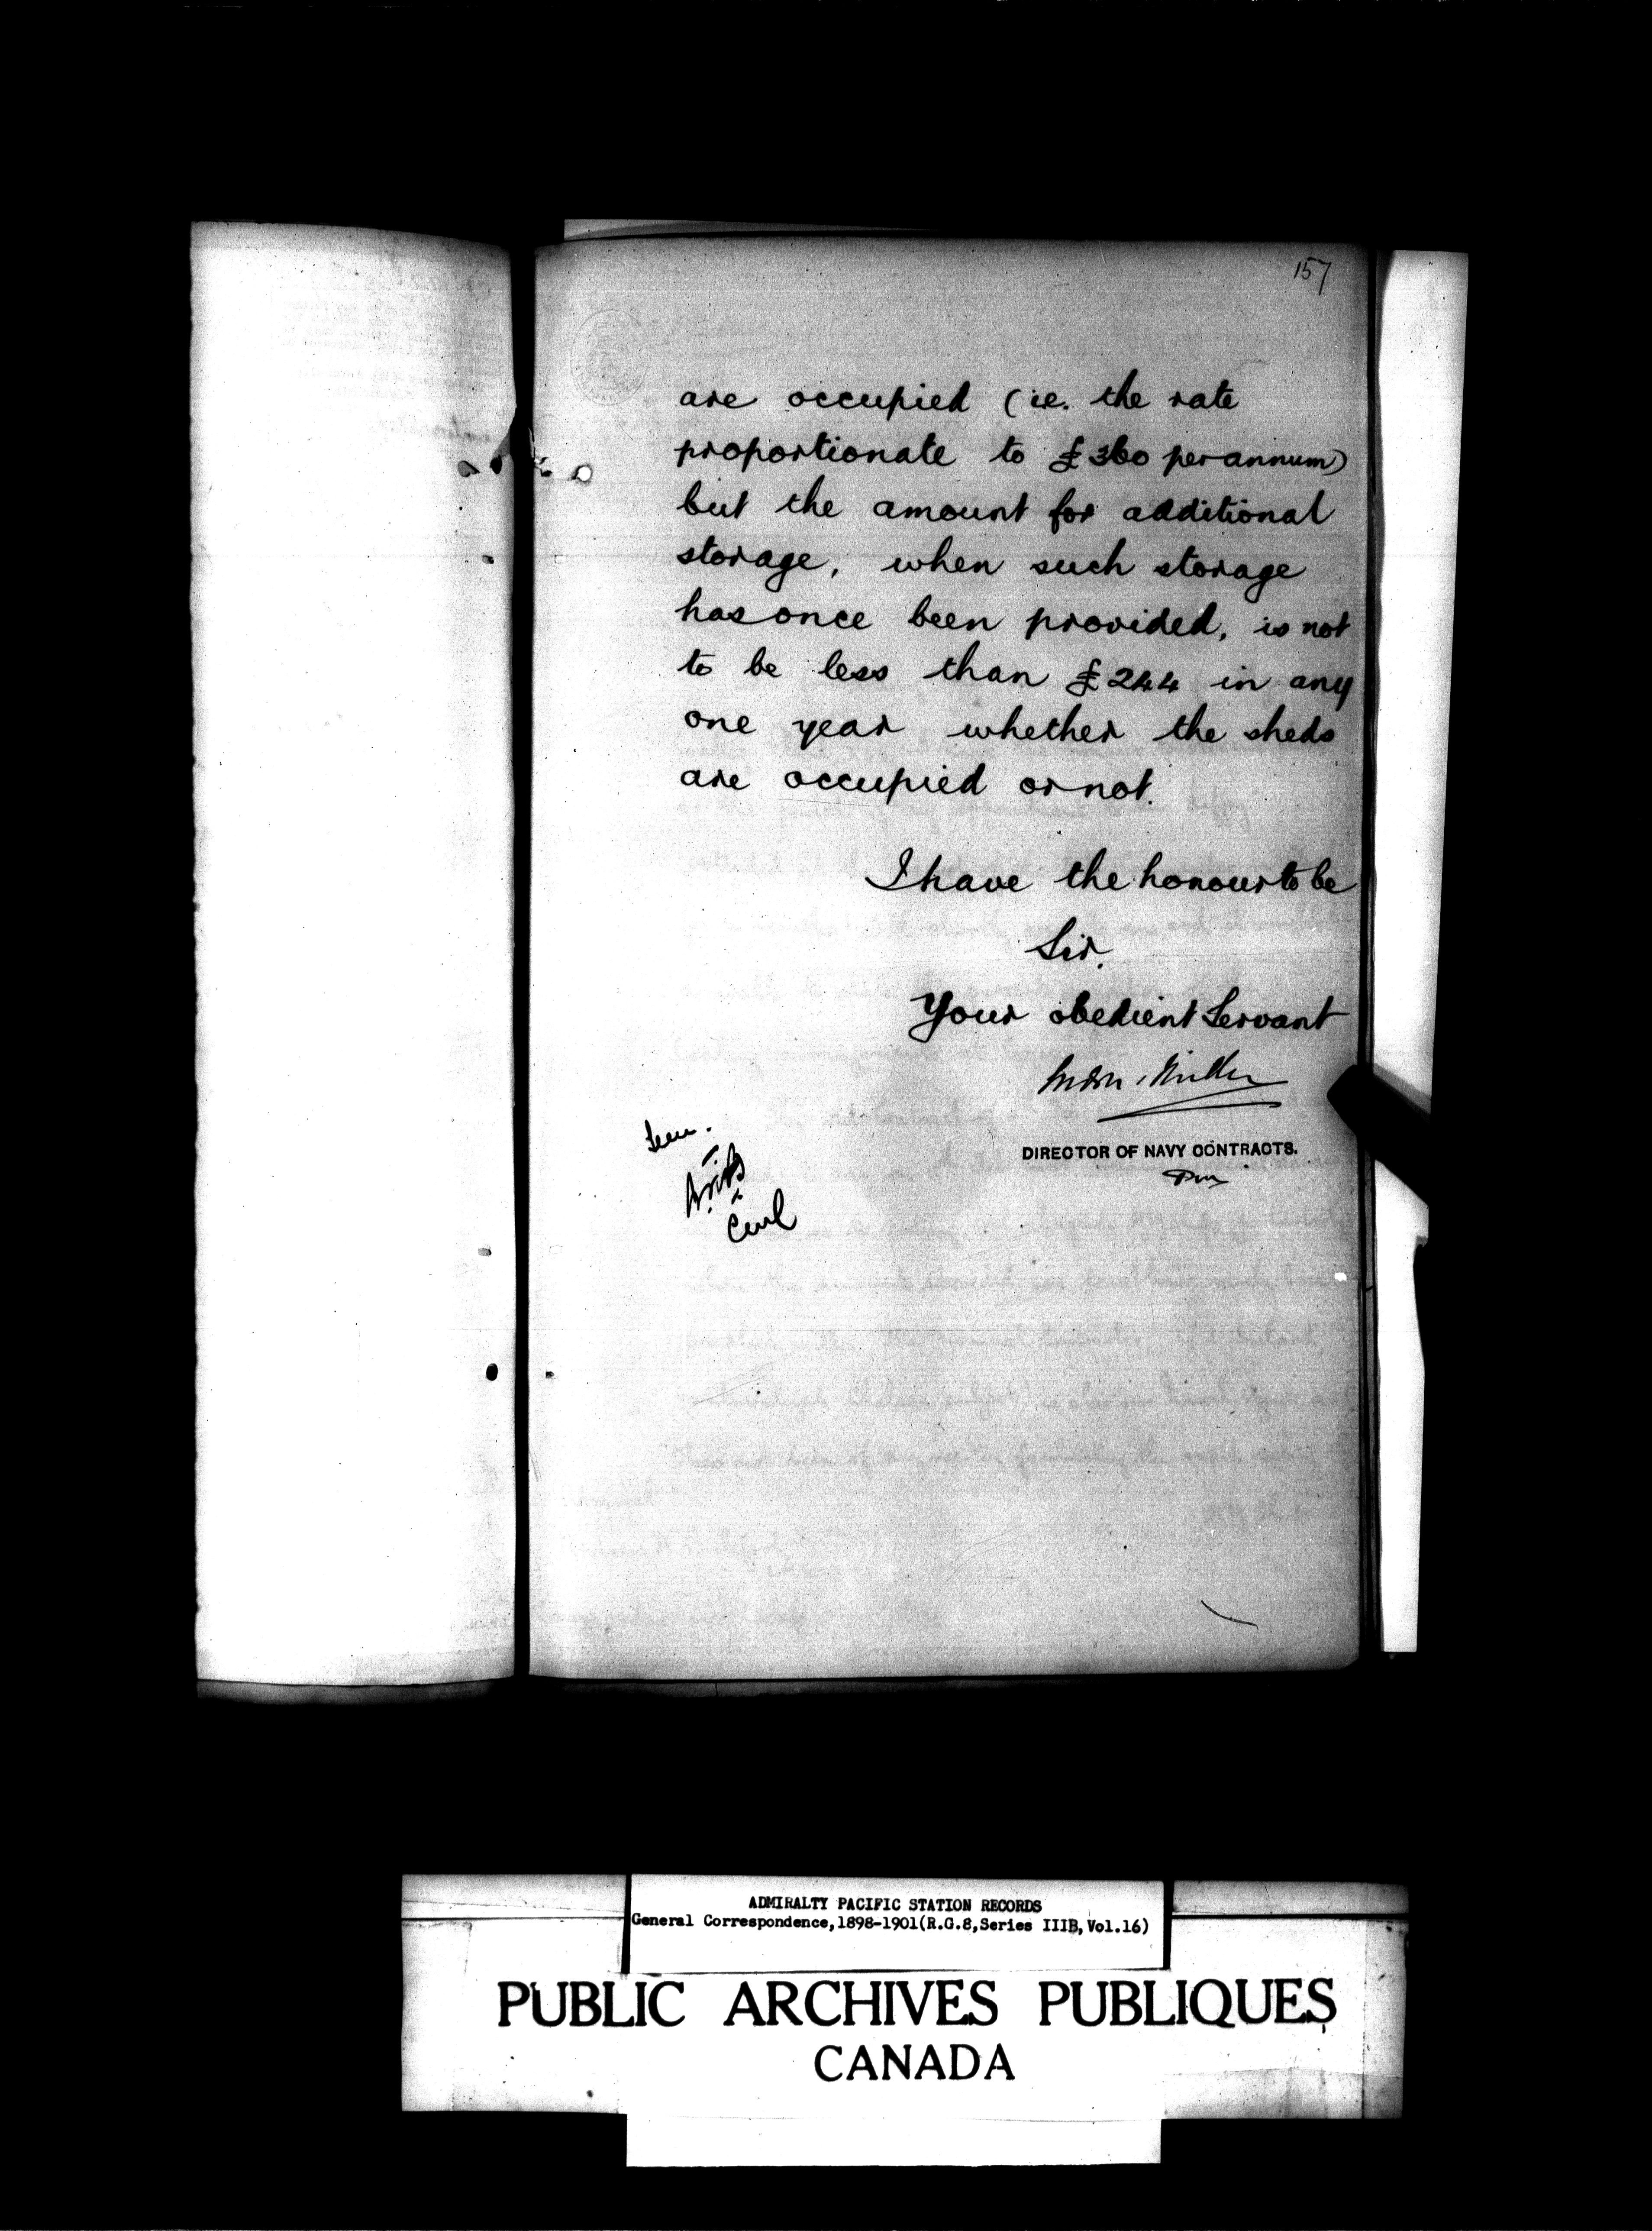 157
are occupied (ie. the rate
proportionate to £360 per annum)
but the amount for additional
storage, when such storage
has once been provided, is not
to be less than £244 in any
one year whether the sheds
are occupied or not.
I have the honour to be
Sir,
Your obedient Servant
Miller
DIRECTOR OF NAVY CONTRACTS.
Seen.
ADMIRALTY PACIFIC STATION RECORDS
General Correspondence,1898-1901(R.G.8,Series IIIB,Vol.16)
PUBLIC ARCHIVES PUBLIQUES
CANADA